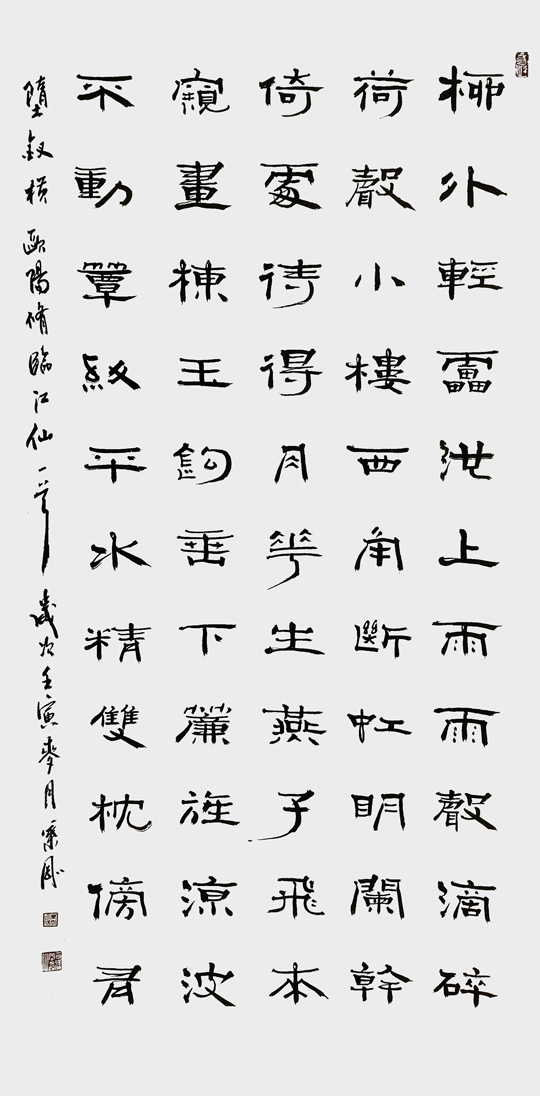 柳外輕靁池上雨雨聲滴碎
荷聲小樓西角斷虹明闌幹
倚處待得月華生燕子飛來
窺畫棟玉鈎垂下簾旌涼波
不動簟紋平水精雙枕傍有
墮釵橫 歐陽脩臨江仙一首 歲次壬寅麥月